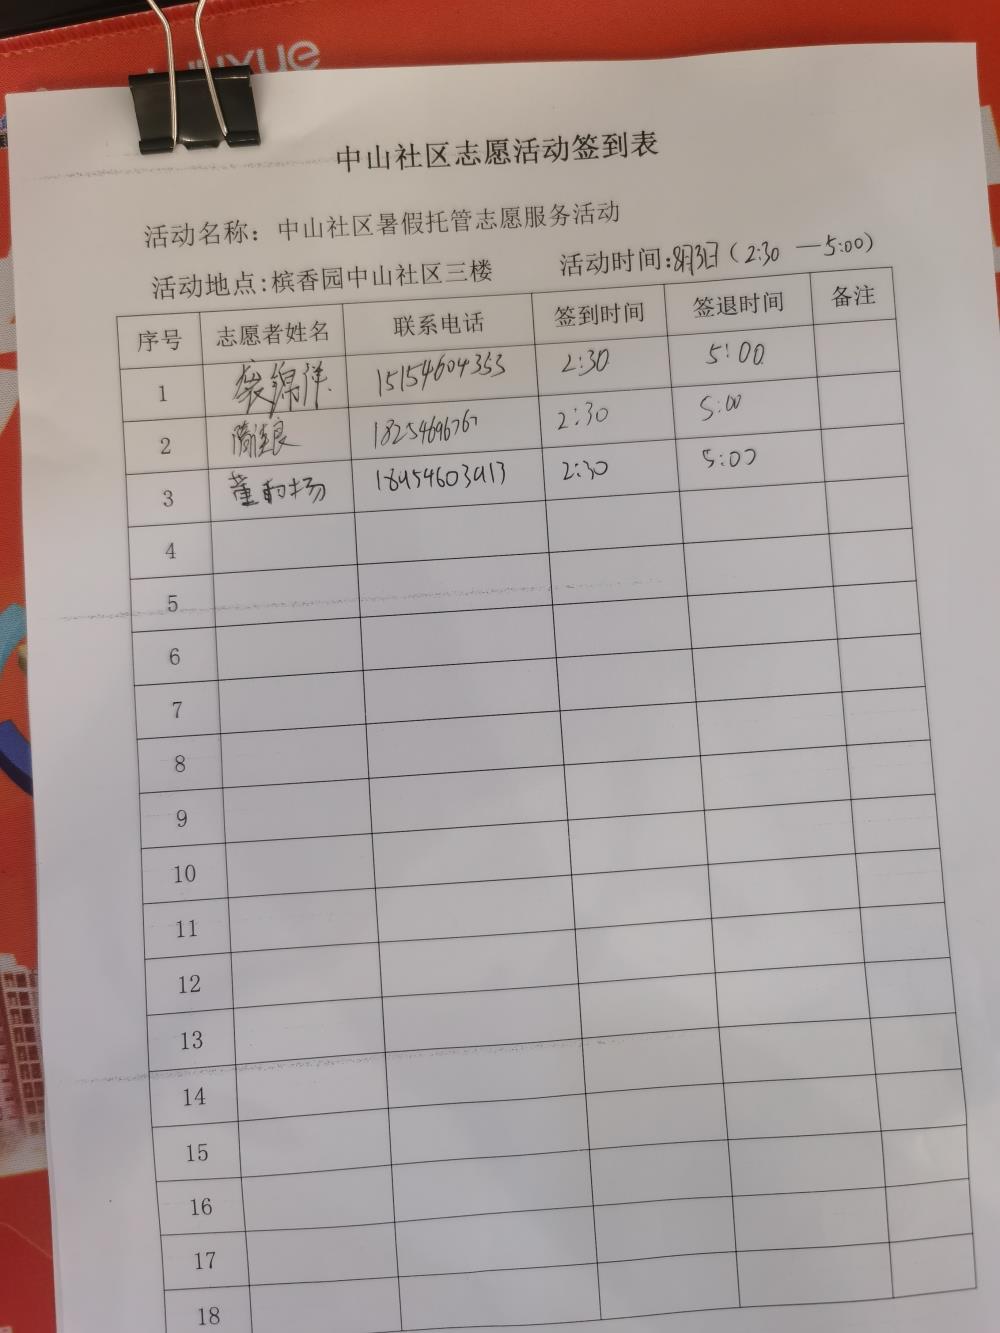 中山社区志愿活动签到表
活动名称：中山社区暑假托管志愿服务活动
活动地点:槟香园中山社区三楼 活动时间:8月3日（2:30 —5:00）
序号 志愿者姓名 联系电话 签到时间 签退时间 备注
1 15154604353 2:30 5:00
2 2:30 5:00
3 2:30 5:00
4
5
6
7
8
9
10
11
12
13
14
15
16
17
18